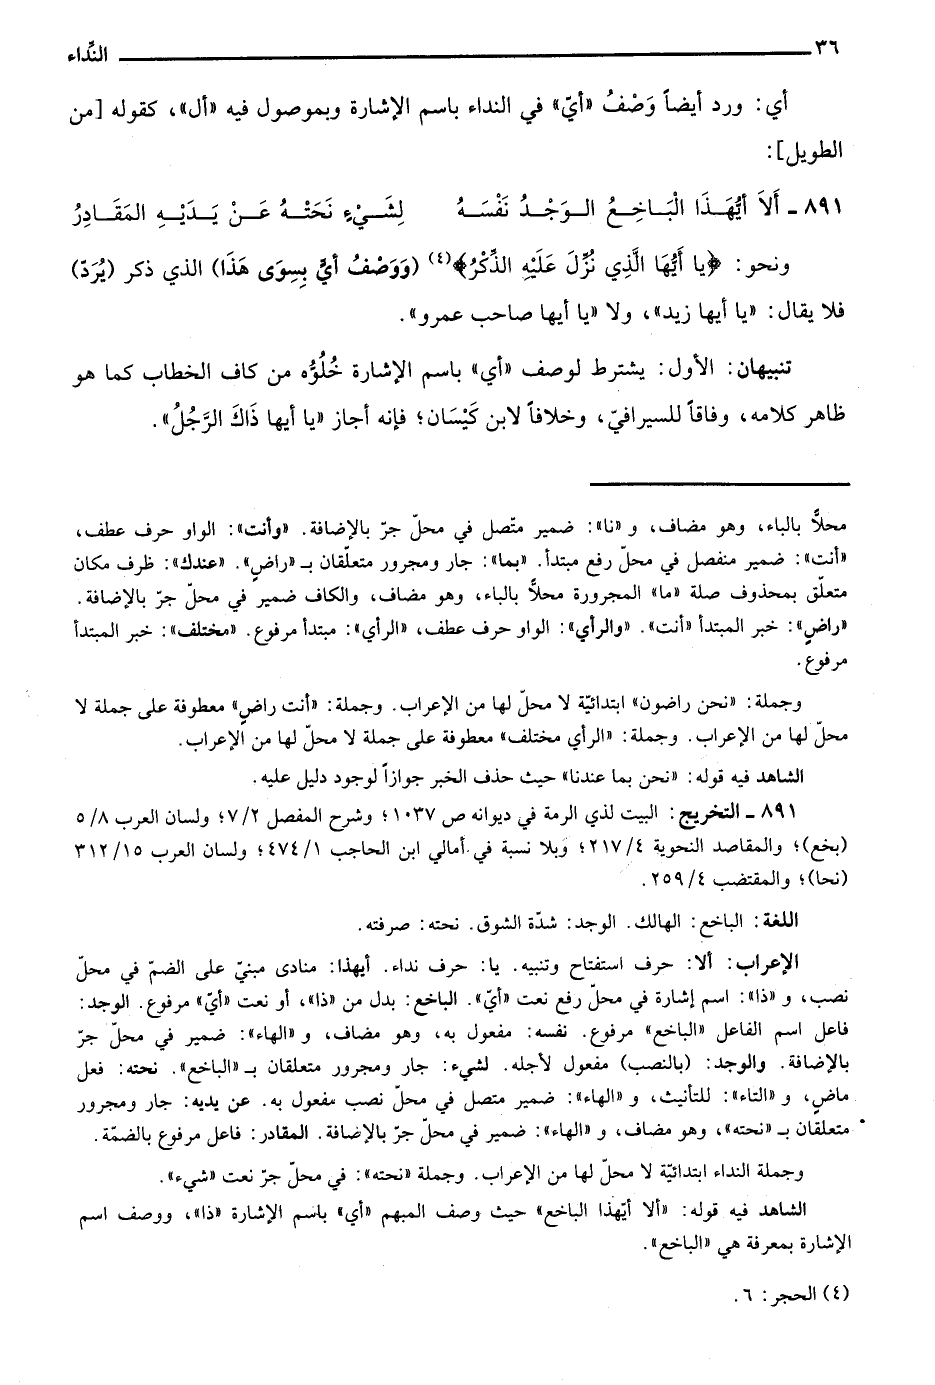 ٣٦ النِّداء
أي: ورد أيضاً وَصْفُ «أيّ» في النداء باسم الإشارة وبموصول فيه «أل»، كقوله [من
الطويل]:
٨٩١ ـ أَلاَ أَيُّهَـذَا الْبَـاخِـعُ الـوَجْـدُ نَفْسَـهُ لِشَـيْءٍ نَحَتْـهُ عَـنْ يَـدَيْـهِ المَقَـادِرُ
ونحو: ﴿يا أَيُّهَا الَّذِي نُزِّلَ عَلَيْهِ الذِّكْرُ﴾(٤) (وَوَصْفُ أيٍّ بِسِوَى هَذَا) الذي ذكر (يُرَدّ)
فلا يقال: «يا أيها زيد»، ولا «يا أيها صاحب عمرو».
تنبيهان: الأول: يشترط لوصف «أي» باسم الإشارة خُلُوُّه من كاف الخطاب كما هو
ظاهر كلامه، وفاقاً للسيرافيّ، وخلافاً لابن كَيْسَان؛ فإنه أجاز «يا أيها ذَاكَ الرَّجُلُ».
محلاًّ بالباء، وهو مضاف، و «نا»: ضمير متّصل في محلّ جرّ بالإضافة. «وأنت»: الواو حرف عطف،
«أنت»: ضمير منفصل في محلّ رفع مبتدأ. «بما»: جار ومجرور متعلّقان بـ «راضٍ». «عندك»: ظرف مكان
متعلّق بمحذوف صلة «ما» المجرورة محلاًّ بالباء، وهو مضاف، والكاف ضمير في محلّ جرّ بالإضافة.
«راضٍ»: خبر المبتدأ «أنت». «والرأي»: الواو حرف عطف، «الرأي»: مبتدأ مرفوع. «مختلف»: خبر المبتدأ
مرفوع.
وجملة: «نحن راضون» ابتدائيّة لا محلّ لها من الإعراب. وجملة: «أنت راضٍ» معطوفة على جملة لا
محلّ لها من الإعراب. وجملة: «الرأي مختلف» معطوفة على جملة لا محلّ لها من الإعراب.
الشاهد فيه قوله: «نحن بما عندنا» حيث حذف الخبر جوازاً لوجود دليل عليه.
٨٩١ ـ التخريج: البيت لذي الرمة في ديوانه ص ١٠٣٧؛ وشرح المفصل ٧/٢؛ ولسان العرب ٥/٨
(بخع)؛ والمقاصد النحوية ٢١٧/٤؛ وبلا نسبة في أمالي ابن الحاجب ٤٧٤/١؛ ولسان العرب ٣١٢/١٥
(نحا)؛ والمقتضب ٢٥٩/٤.
اللغة: الباخع: الهالك. الوجد: شدّة الشوق. نحته: صرفته.
الإعراب: ألا: حرف استفتاح وتنبيه. يا: حرف نداء. أيهذا: منادى مبنيّ على الضمّ في محلّ
نصب، و «ذا»: اسم إشارة في محلّ رفع نعت «أيّ». الباخع: بدل من «ذا»، أو نعت «أيّ» مرفوع. الوجد:
فاعل اسم الفاعل «الباخع» مرفوع. نفسه: مفعول به، وهو مضاف، و «الهاء»: ضمير في محلّ جرّ
بالإضافة. والوجد: (بالنصب) مفعول لأجله. لشيء: جار ومجرور متعلقان بـ «الباخع». نحته: فعل
ماضٍ، و «التاء»: للتأنيث، و «الهاء»: ضمير متصل في محلّ نصب مفعول به. عن يديه: جار ومجرور
متعلقان بـ «نحته»، وهو مضاف، و «الهاء»: ضمير في محلّ جرّ بالإضافة. المقادر: فاعل مرفوع بالضمّة.
وجملة النداء ابتدائيّة لا محلّ لها من الإعراب. وجملة «نحته»: في محلّ جرّ نعت «شيء».
الشاهد فيه قوله: «ألا أيّهذا الباخع» حيث وصف المبهم «أي» باسم الإشارة «ذا»، ووصف اسم
الإشارة بمعرفة هي «الباخع».
(٤) الحجر: ٦.